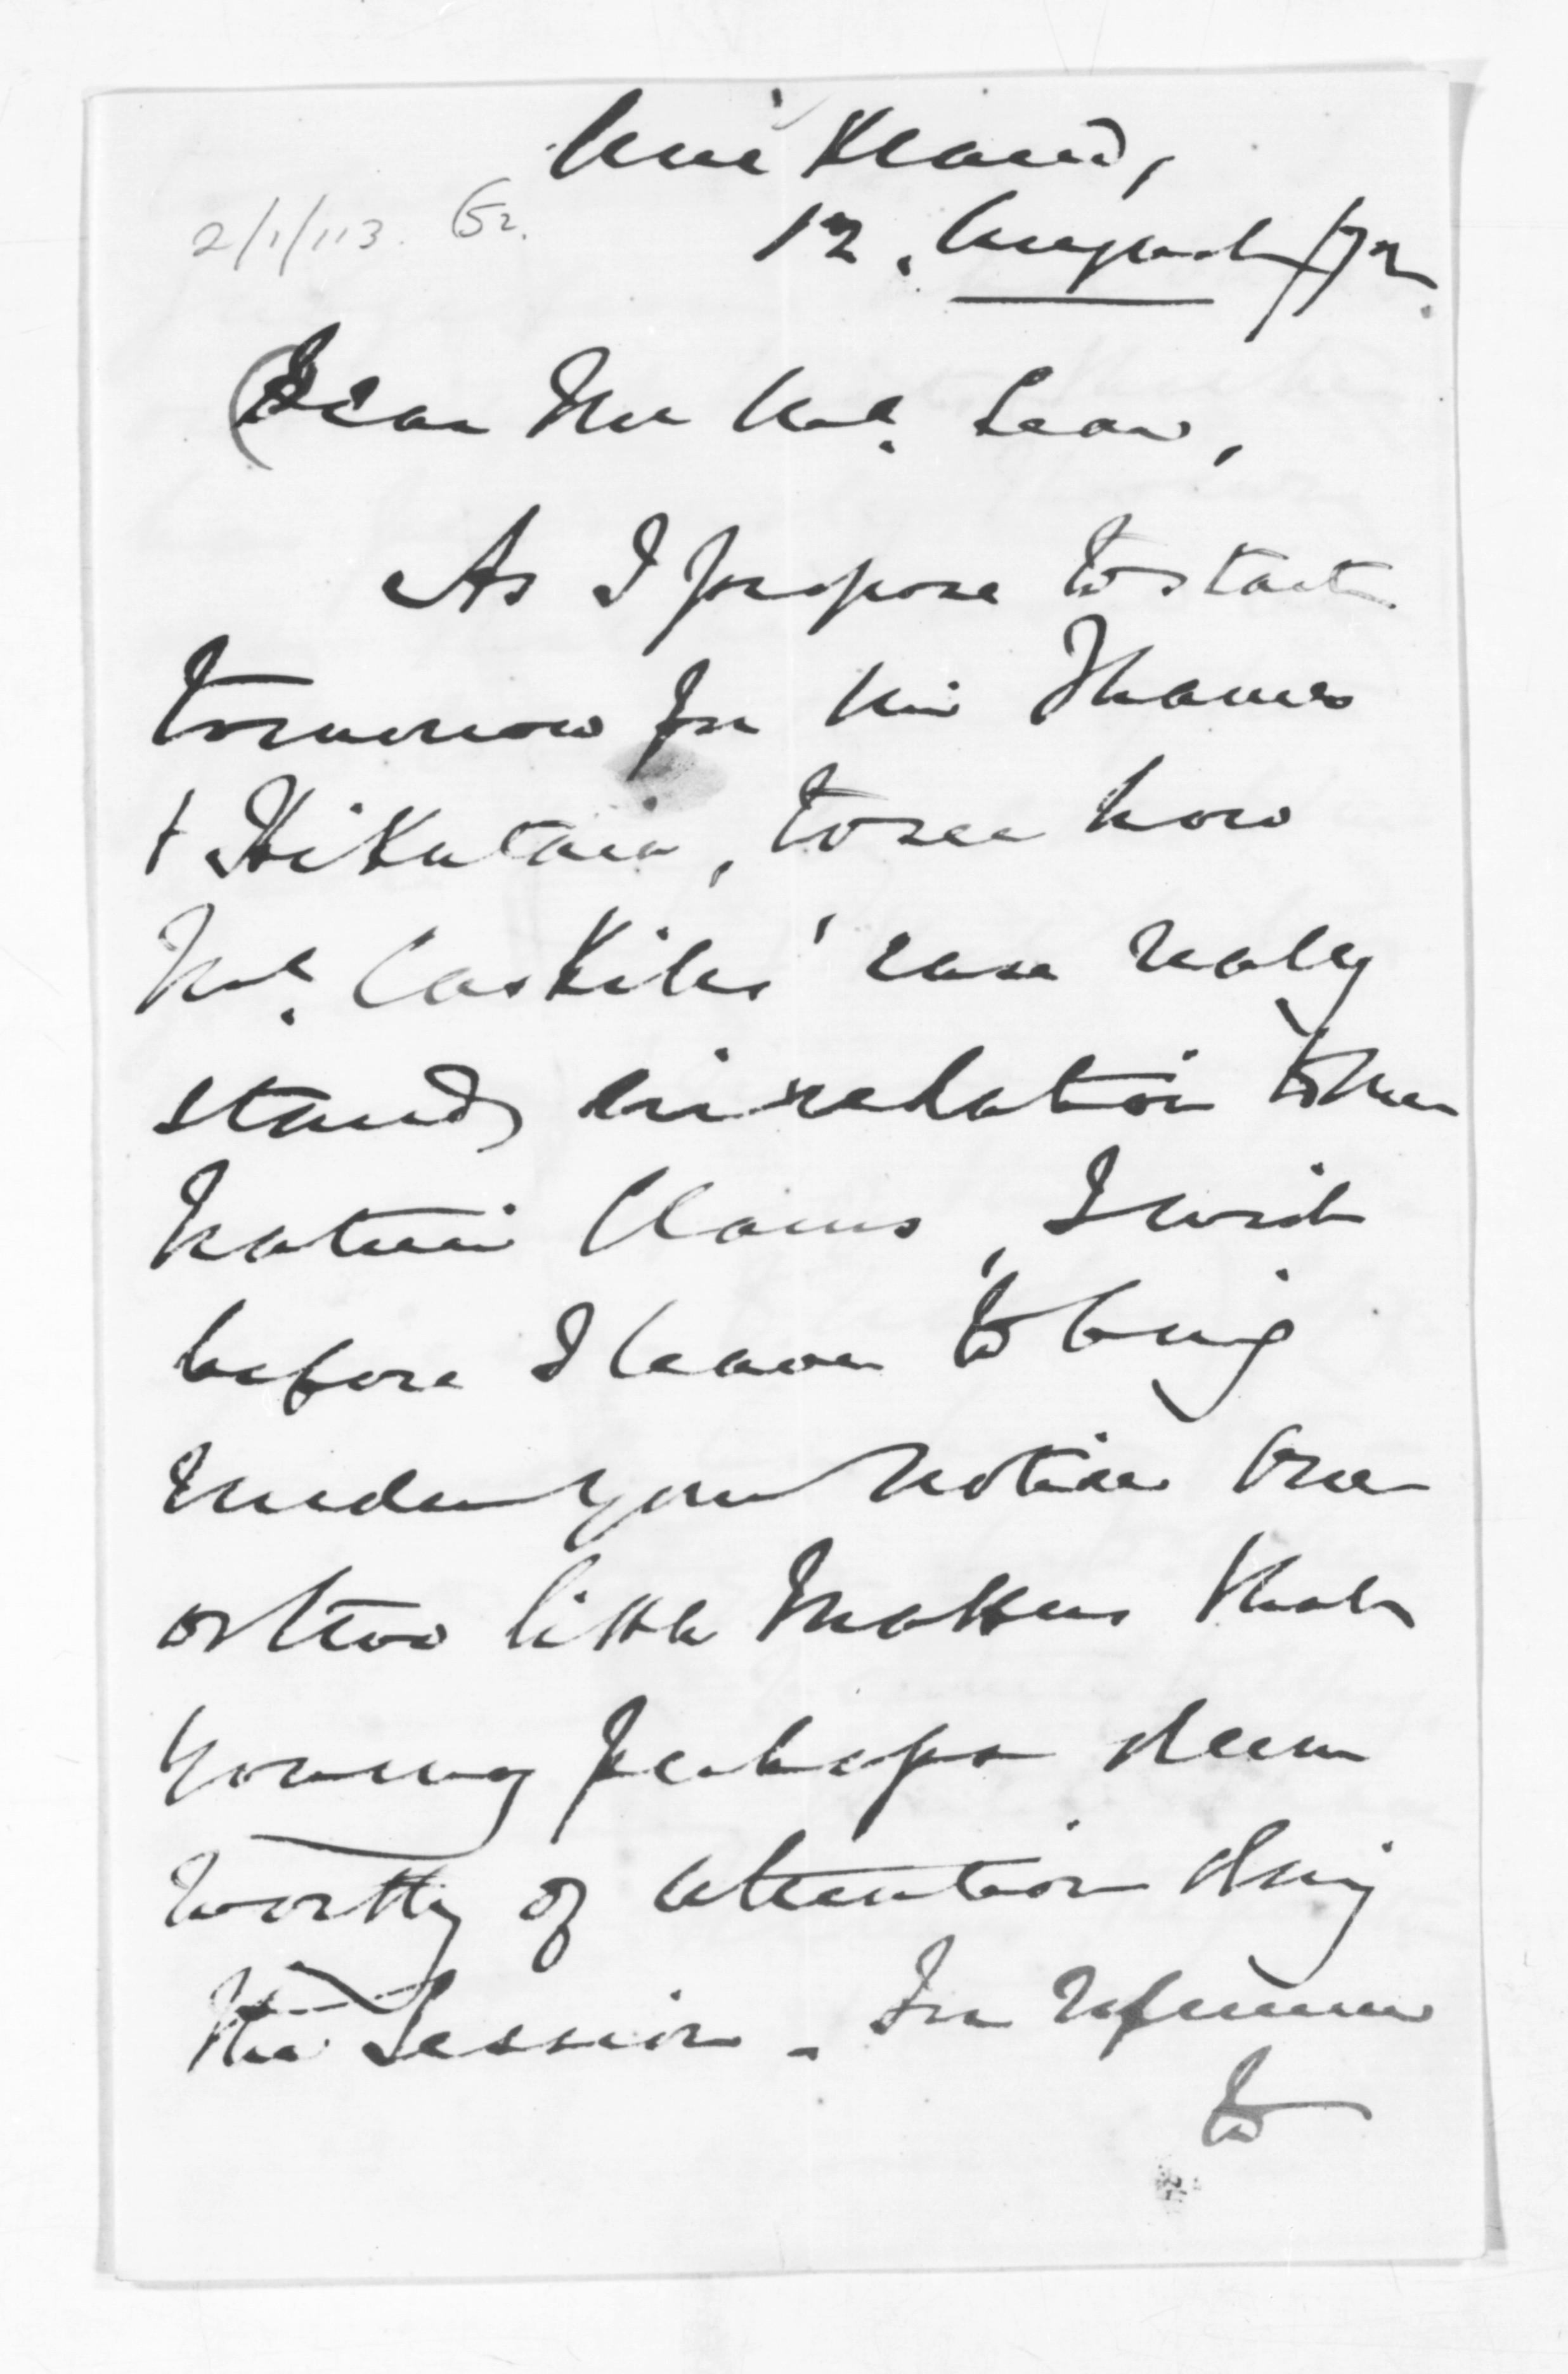 Auckland,
2/1/113. G2.
12. August /72.
Dear Mr McLean,
As I propose to start
tomorrow for the Thames
& Hikutaia, to see how
McCaskills' case really
stands in relation to the
Native Claims, I wish
before I leave to bring
under your notice one
or two little matters that
you may perhaps deem
worthy of attention during
the Session. In reference
to